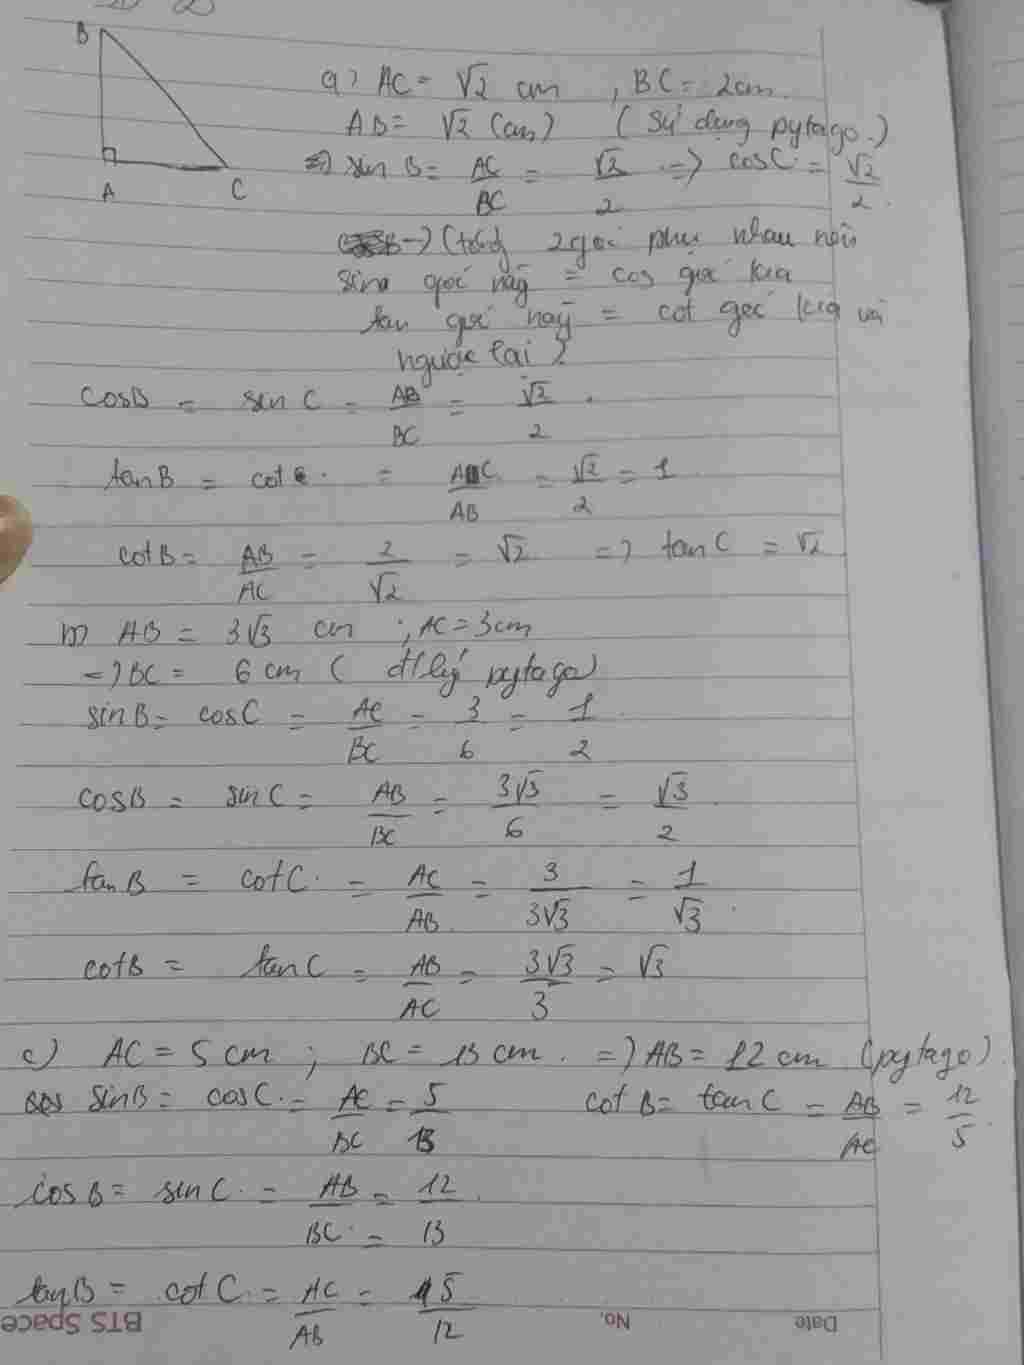 B
A
C
a) AC = √2 cm , BC = 2cm.
AB = √2 (cm) ( Sử dụng pytago.)
=> sin B = AC/BC = √2/2 => cosC = √2/2.
2 góc phụ nhau nên
sin góc này = cos góc kia
tan góc này = cot góc kia và
ngược lại )
cosB = sin C = AB/BC = √2/2 .
tanB = cot C. = AC/AB = √2/2 = 1
cotB = AB/AC = 2/√2 = √2 => tanC = √2
b) AB = 3√3 cm ; AC = 3cm
=> BC = 6 cm ( đ lý pytago)
sinB = cosC = AC/BC = 3/6 = 1/2
cosB = sinC = AB/BC = 3√3/6 = √3/2.
tanB = cotC. = AC/AB = 3/3√3 = 1/√3.
cotB = tanC = AB/AC = 3√3/3 = √3
c) AC = 5 cm ; BC = 13 cm. => AB = 12 cm (pytago).
sinB = cosC. = AC/BC = 5/13 cotB = tanC = AB/AC = 12/5.
cosB = sinC. = AB/BC. = 12/13.
tanB = cotC. = AC/AB = 5/12
BTS Space No. Date